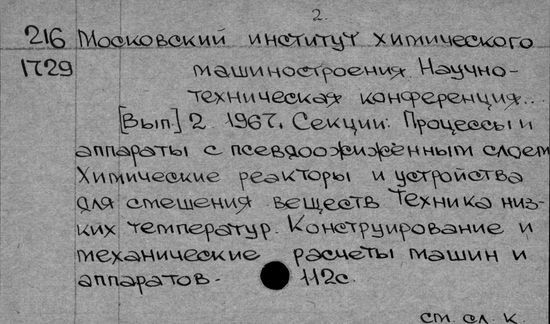 2.
216 Московский институт химического
1729 машиностроения. Научно-
техническая конференция...
[Вып] 2. 1967. Секции: Процессы и
аппараты с псевдоожиженным слоем
Химические реакторы и устройства
для смешения веществ Техника низ-
ких температур. Конструирование и
механические расчеты машин и
аппаратов. 112с.
см. сл. к.